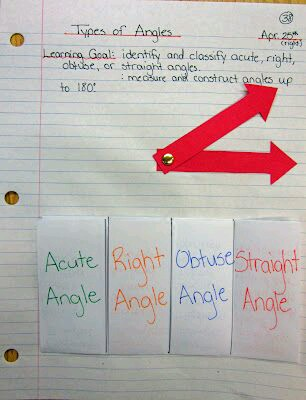 38
Types of Angles
Apr. 25th
(right)
Learning Goal: identify and classify acute, right,
obtuse, or straight angles.
: measure and construct angles up
to 180°
Acute Angle
Right Angle
Obtuse Angle
Straight Angle